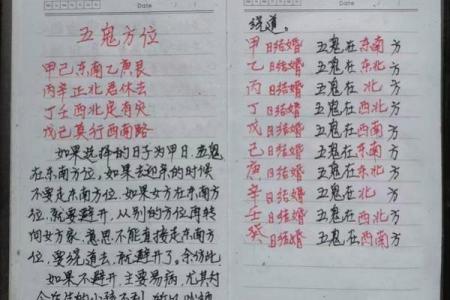 Date
五鬼方位
甲己东南乙庚艮
丙辛正北君休去
丁壬西北定有灾
戊己莫行西南路
如果选择的日子为甲日,五鬼
在东南方位,如果去迎亲的时候
不要走东南方位,如果女方在东南方
位,就要避开,从别的方位再转
向女方家,意思不能直接走东南方
位,要绕道去,就避开了。余仿此
如果不避开,主要易病,尤其对
Date
绕道。
甲日结婚 五鬼在东南方
乙日结婚 五鬼在东北方
丙日结婚 五鬼在北方
丁日结婚 五鬼在西北方
戊日结婚 五鬼在西南方
己日结婚 五鬼在东南方
庚日结婚 五鬼在东北方
辛日结婚 五鬼在北方
壬日结婚 五鬼在西北方
癸日结婚 五鬼在西南方